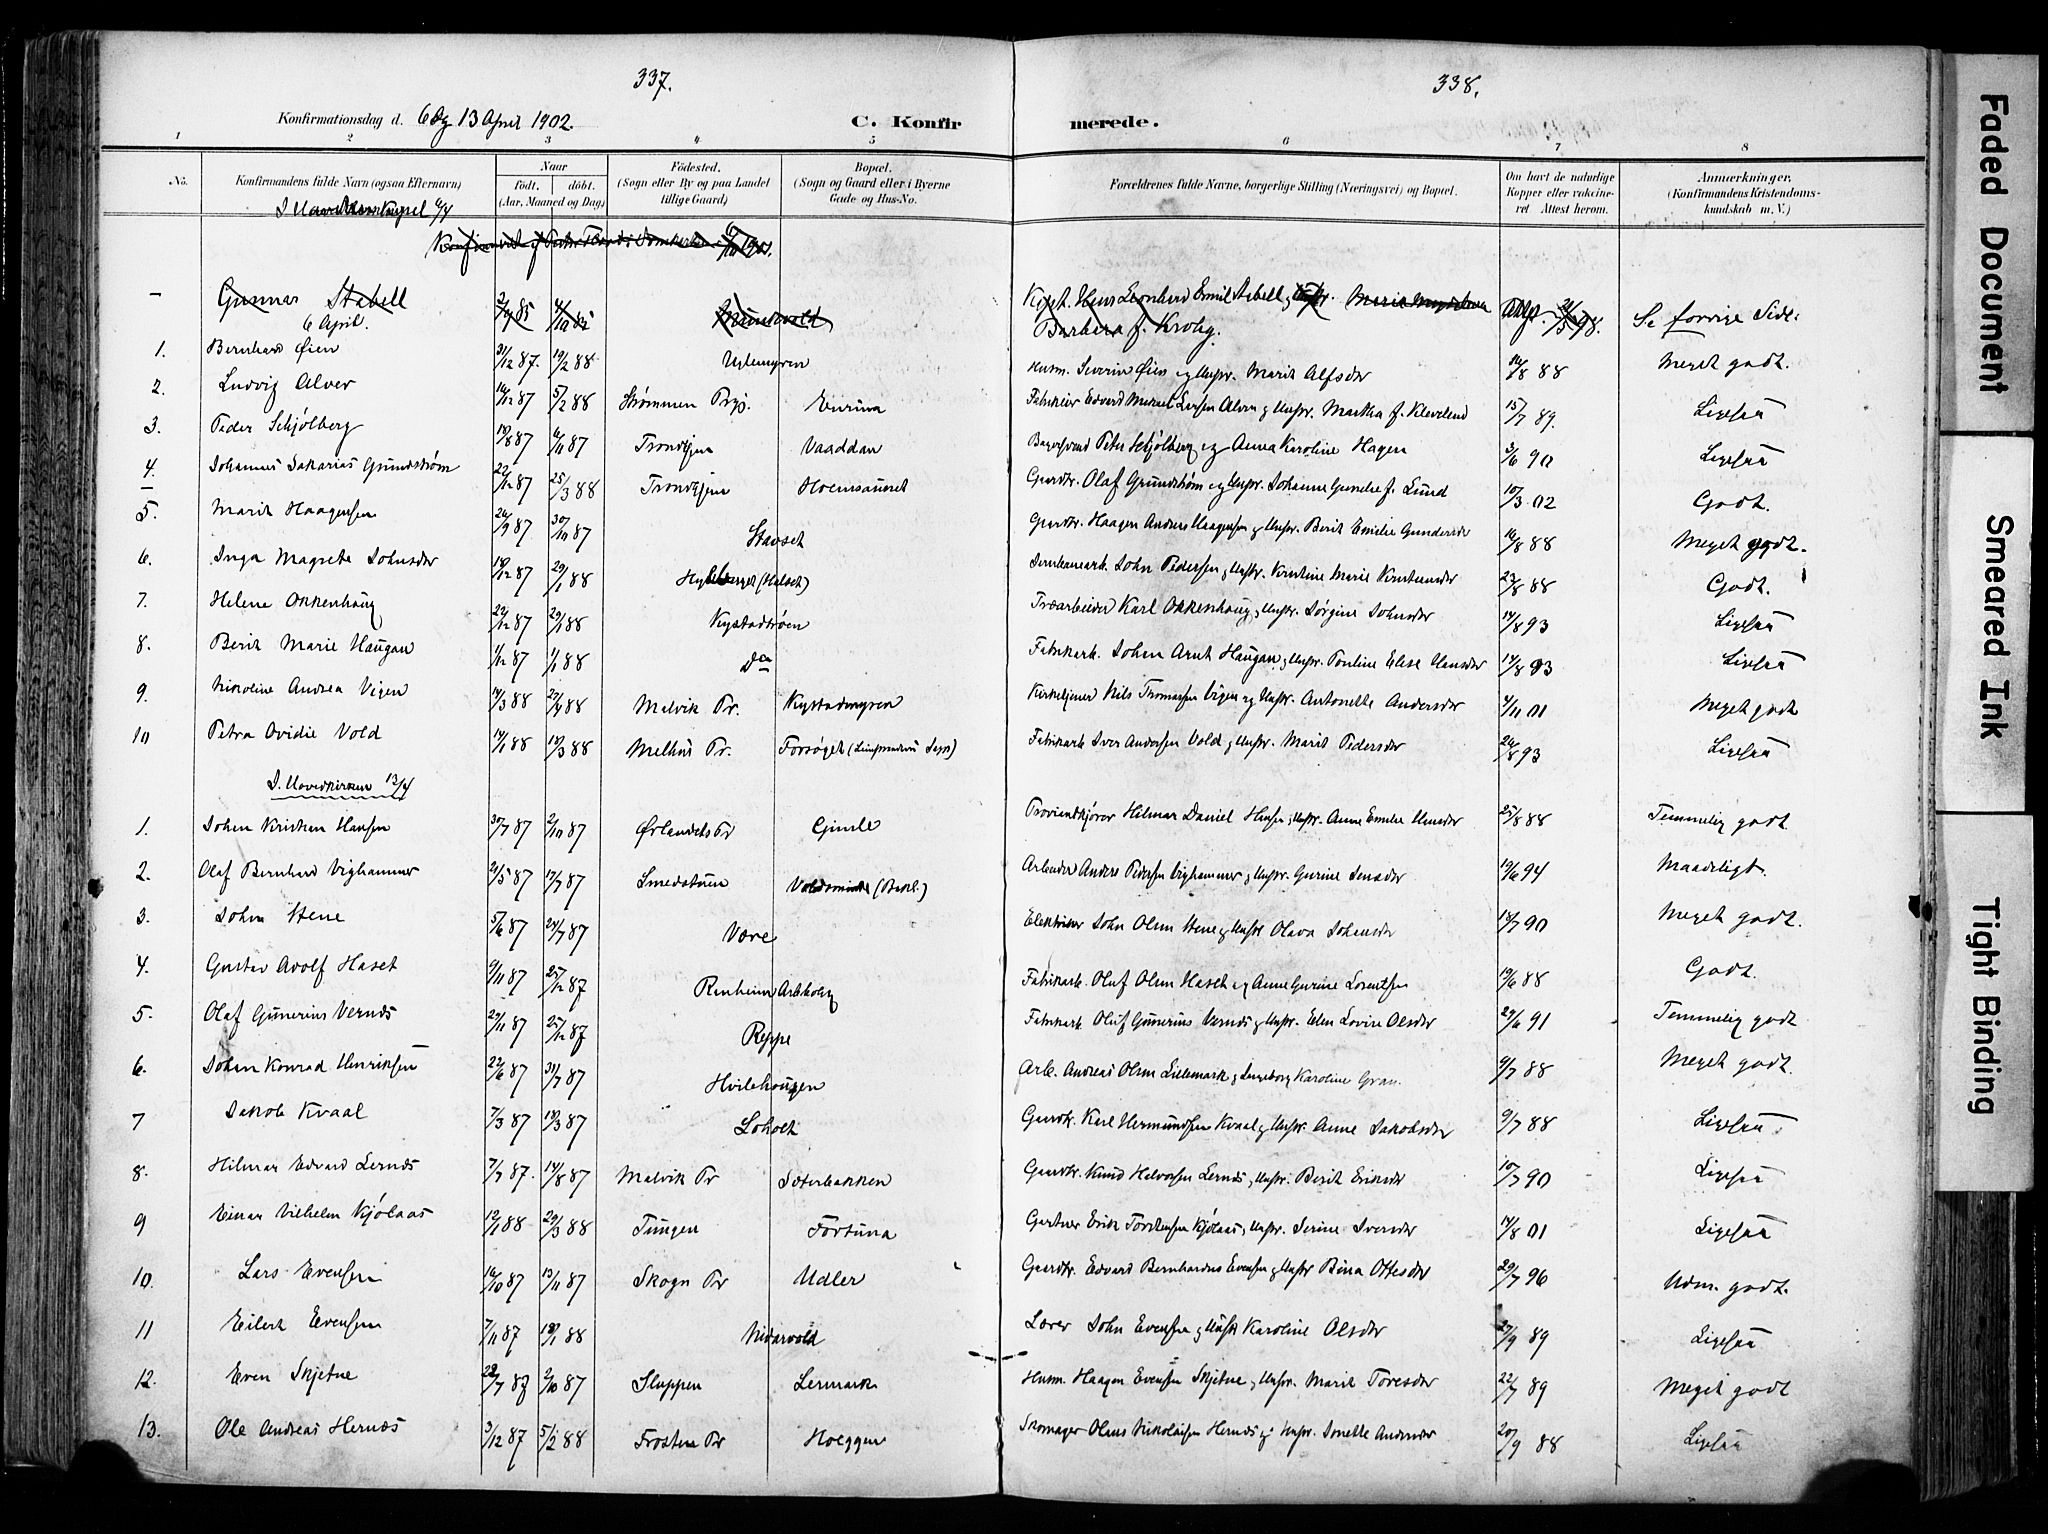 337.
338.
Konfirmationsdag d. 6 og 13 April 1902.
C. Konfir
merede.
1 2 3 4 5 6 7 8
No.
Konfirmandens fulde Navn (ogsaa Efternavn)
Naar
födt. döbt.
(Aar, Maaned og Dag)
Födested.
(Sogn eller By og paa Landet tillige Gaard)
Bopæl.
(Sogn og Gaard eller i Byerne Gade og Hus-No.
Forældrenes fulde Navne, borgerlige Stilling (Næringsvei) og Bopæl.
Om havt de naturlige Kopper eller vakcineret Attest herom.
Anmærkninger,
(Konfirmandens Kristendomskundskab m. V.)
Gunnar Stabell Se forrige Side.
6 April.
1. Bernhard Øien 31/12 87. 19/2 88 Uglemyren Husm. Severin Øien og Hustr. Marit Alfsdtr 16/8 88 Meget godt.
2. Ludvig Alver 16/12 87 5/2 88 Strømmen Prgj. 15/7 89. Ligesaa
3. Peder Schjølberg 18/8 87 6/11 87 Trondhjem Vaaddan Peter Schjølberg og Anna Karoline Hagen 3/6 90 Ligesaa
4. Johannes Sakarias Grundstrøm 22/12 87 25/3 88 Trondhjem Gaardbr. Olaf Grundstrøm og Hustr. Lund 10/3 02 Godt.
5. Marit Haagensen 26/9 87 30/10 87 Stavset Gaardbr. Haagen Anders Haagensen og Hustr. Berit Emilie Gundersdtr 16/8 88 Meget godt.
6. Inga Magrete Johnsdtr 18/12 87 29/1 88 (Halset) John Pedersen og Hustr. Kristine Marie 23/8 88 Godt.
7. Helene Okkenhaug 22/12 87 29/1 88 Kystadtrøen Træarbeider Karl Okkenhaug og Hustr. Jørgine Johnsdtr 14/8 93 Ligesaa
8. Berit Marie Haugan 1/12 87 1/1 88 Do Fabrikarb. Johan Arnt Haugan og Hustr. Pauline Elise Hansdtr 14/8 93 Ligesaa
9. Nikoline Andrea Vigen 14/3 88 27/4 88 Melvik Pr. Kystadmyren Kirketjener Nils Thomassen Vigen og Hustr. Antonette Andersdtr 4/11 01 Meget godt
10 Petra Ovidie Vold 14/1 88 18/3 88 Melhus Pr. Forsøget Fabrikarb Iver Andersen Vold og Hustr. Marit Pedersdtr 26/8 93 Ligesaa
I. Hovedkirken 13/4
1. Johan Kristian Hansen 30/7 87 2/10 87 Ørlandets Pr Gimle Proviantkjører Hilmar Daniel Hansen, Hustr. Anne Emilie Hansdtr 25/8 88 Temmelig godt
2. Olaf Bernhard Vighammer 21/5 87 17/7 87 Smedstuen Voldsminde (Bakl.) Arbeider Anders Pedersen Vighammer og Hustr. Gurine Jensdtr 19/6 94 Maadeligt.
3. John Stene 5/6 87 24/7 87 Være Elektriker John Olsen Stene og Hustr Olava Johansdtr 18/7 90 Meget godt.
4. Gustav Adolf Haset 9/11 87 25/12 87 Renheim Arbkolog Fabrikarb. Oluf Olsen Haset og Anne Gurine Lorentsen 19/6 88 Godt.
5. Olaf Gunerius Vernes 29/11 87 25/12 87 Reppe Fabrikarb Oluf Gunerius Vernes og Hustr. Elen Lovise Olsdtr 29/6 91 Temmelig godt
6. Johan Konrad Henriksen 22/6 87 31/7 87 Hvilehaugen Arb. Andreas Olsen Lillemark og Ingeborg Karoline Gran. 9/7 88 Meget godt.
7 Jakob Kvaal 7/3 87 13/3 87 Loholt Gaardbr. Karl Hermundsen Kvaal og Hustr. Anne Jakobsdtr 9/7 88 Ligesaa
8. Hilmar Edvard Lernes 7/7 87. 14/8 87 Malvik Pr Sæterbakken Gaardbr. Knud Halvorsen Lernes, Hustr. Berit Eriksdtr 10/7 90 Ligesaa
9 Einar Vilhelm Kjølaas 12/1 88 29/3 88 Tungen Fortuna Gartner Erik Torstensen Kjølaas, Hustr. Serine Iversdtr 14/8 01 Ligesaa
10. Lars Evensen 16/10 87 13/11 87 Skogn Pr Udler Gaardbr. Edvard Bernhardus Evensen og Hustr Bina Ottesdtr 29/7 96 Udm. godt.
11 Eilert Evensen 7/11 87 18/1 88 Nidarvold Lærer John Evensen og Hustr Karoline Olsdtr 27/9 89 Ligesaa
12. Even Skjetne 22/7 87 2/10 87 Sluppen Lermark Husm. Haagen Evensen Skjetne og Hustr. Marit Toresdtr 22/7 89 Meget godt
13. Ole Andreas Hernes 3/12 87 5/2 88 Frosten Pr Hoeggen Skomager Olaus Nikolaisen Hernes og Hustr. Jonette Andersdtr 20/9 88 Ligesaa
Faded Document
Smeared Ink
Tight Binding